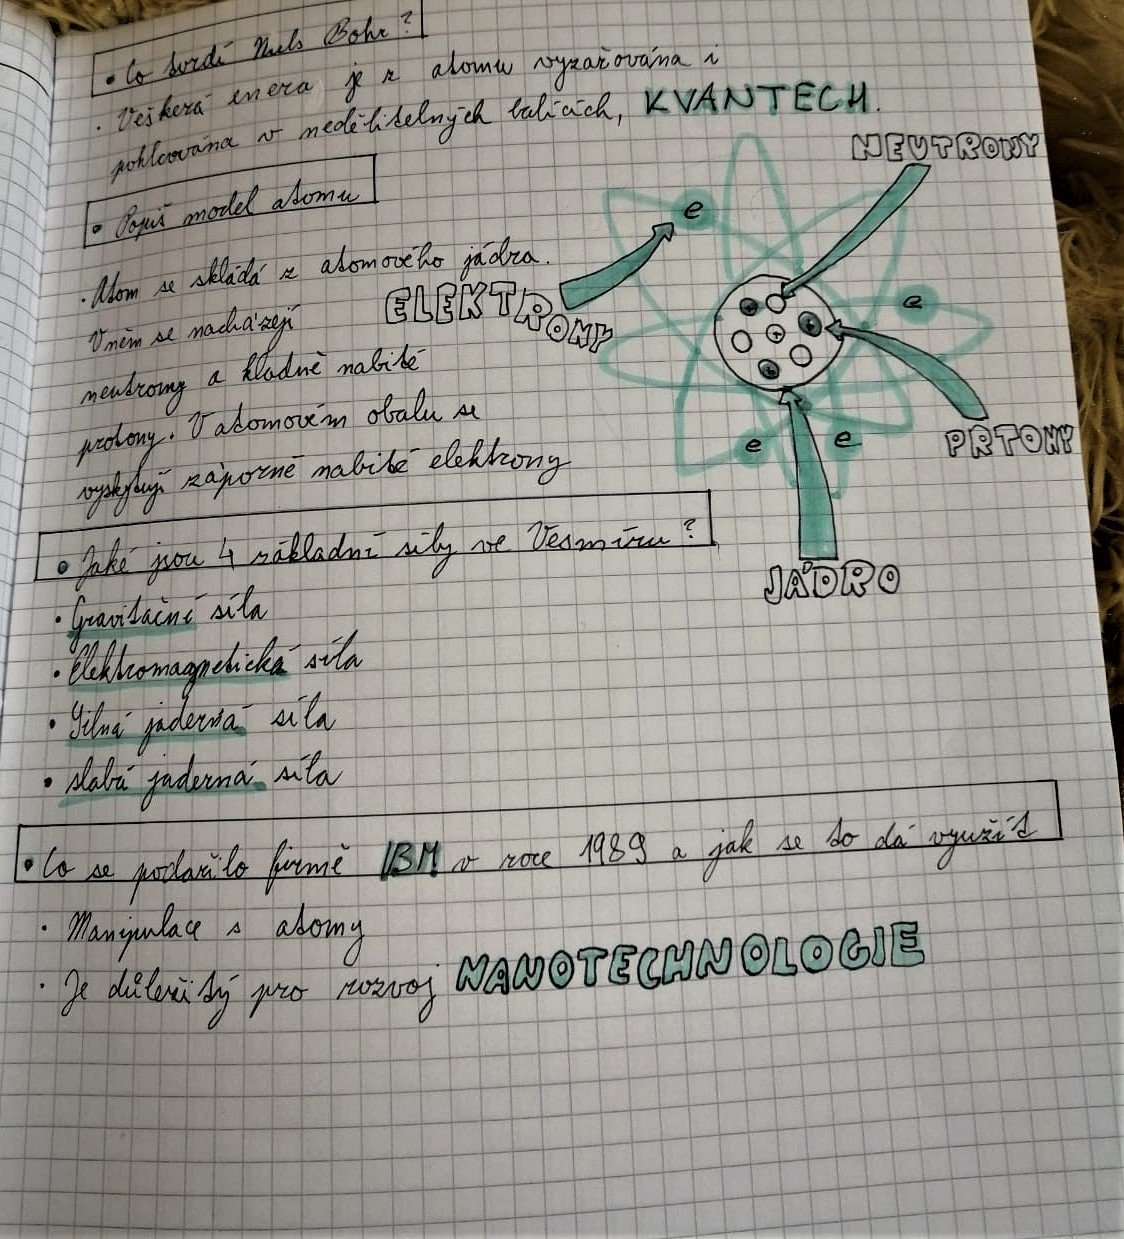 • Co tvrdí Niels Bohr?
• Veškerá enera je z atomu vyzařována i
pohlcována v nedělitelných balících, KVANTECH.
• Popiš model atomu
• Atom se skládá z atomového jádra.
V něm se nacházejí
neutrony a kladně nabité
protony. V atomovém obalu se
vyskytují záporně nabité elektrony
NEUTRONY
e
ELEKTRONY
e
+
+
PRTONY
e
e
JÁDRO
• Jaké jsou 4 základní síly ve Vesmíru?
• Gravitační síla
• Elektromagnetická síla
• Silná jaderná síla
• slabá jaderná síla
• Co se podařilo firmě IBM v roce 1989 a jak se to dá využít
• Manipulace s atomy
• Je důležitý pro rozvoj NANOTECHNOLOGIE